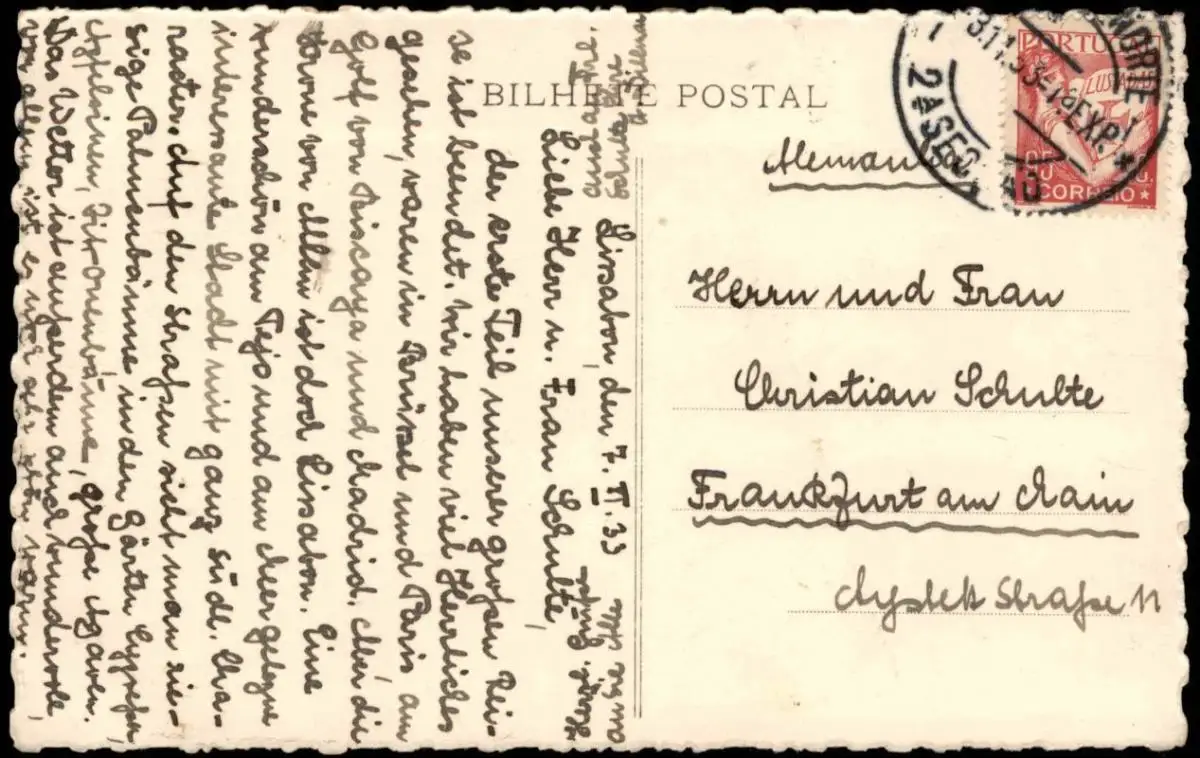 BILHETE POSTAL
PORTUGAL
LUSIADAS
CORREIO
2ª SEC
Alemanha
Herrn und Frau
Christian Schulte
Frankfurt am Main
Straße 11
Lissabon, den 7. XI. 33
Liebe Herr u. Frau Schulte,
der erste Teil unserer großen Rei-
se ist beendet. Wir haben viel Herrliches
gesehen, waren in Brüssel und Paris am
Golf von Biscaya und Madrid. Aber die
Krone von Allem ist doch Lissabon. Eine
wunderschön am Tejo und am Meer gelegene
interessante Stadt mit ganz südl. Cha-
rakter. Auf den Straßen sieht man rie-
sige Palmenbäume in den Gärten Cypressen,
Apfelsinen, Zitronenbäume, große Agaven.
Das Wetter ist außerdem auch wundervoll,
vor allem ist es hier sehr schön warm.